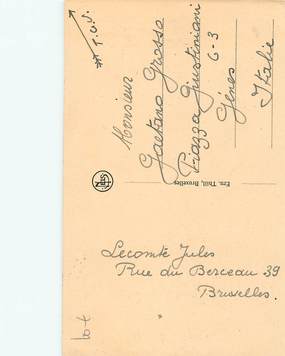 T.S.V.
Monsieur
Gaetano Grosso
Piazza Giustiniani
6-3
Gênes
Italie
Ern. Thill, Bruxelles
NELS
Lecomte Jules
Rue du Berceau 39
Bruxelles.